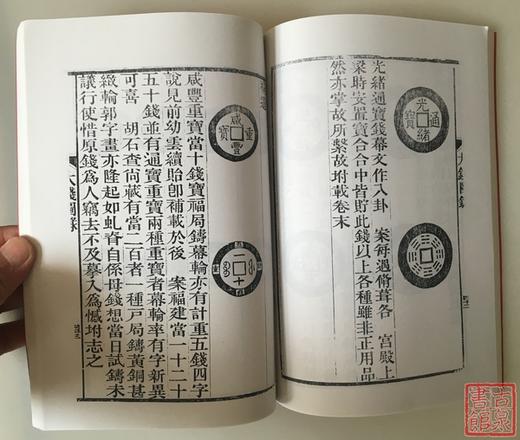 光緒通寶
光緒通寶錢幕文作八卦　案每遇脩葺各　宮殿上
梁時安置寶合合中皆貯此錢以上各種雖非正用品
然亦掌故所繫故坿載卷末
咸豐重寶
二十
咸豐重寶當十錢寶福局鑄幕輪亦有計重五錢四字
說見前幼雲續貽卽補載於後　案福建當一十二十
五十錢並有通寶重寶兩種重寶者幕輪率有字新異
可喜　胡石查尚藏有當二百者一種戶局鑄黃銅甚
緻輪郭字畫亦隆起如虬脊自係母錢想當日試鑄未
議行使惜原錢為人竊去不及摹入為憾坿志之
大錢圖錄
古泉書館